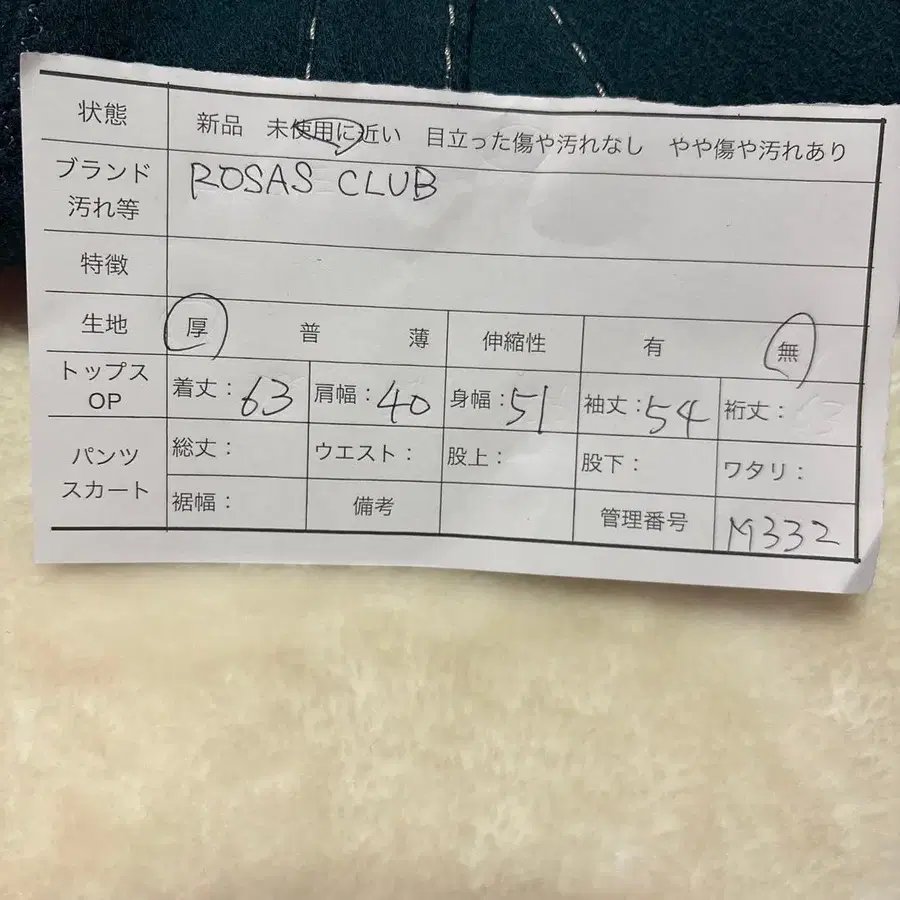 状態 新品 未使用に近い 目立った傷や汚れなし やや傷や汚れあり
ブランド 汚れ等 ROSAS CLUB
特徴
生地 厚 普 薄 伸縮性 有 無
トップス OP 着丈：63 肩幅：40 身幅：51 袖丈：54 裄丈：
パンツ スカート 総丈： ウエスト： 股上： 股下： ワタリ：
裾幅： 備考 管理番号 M332